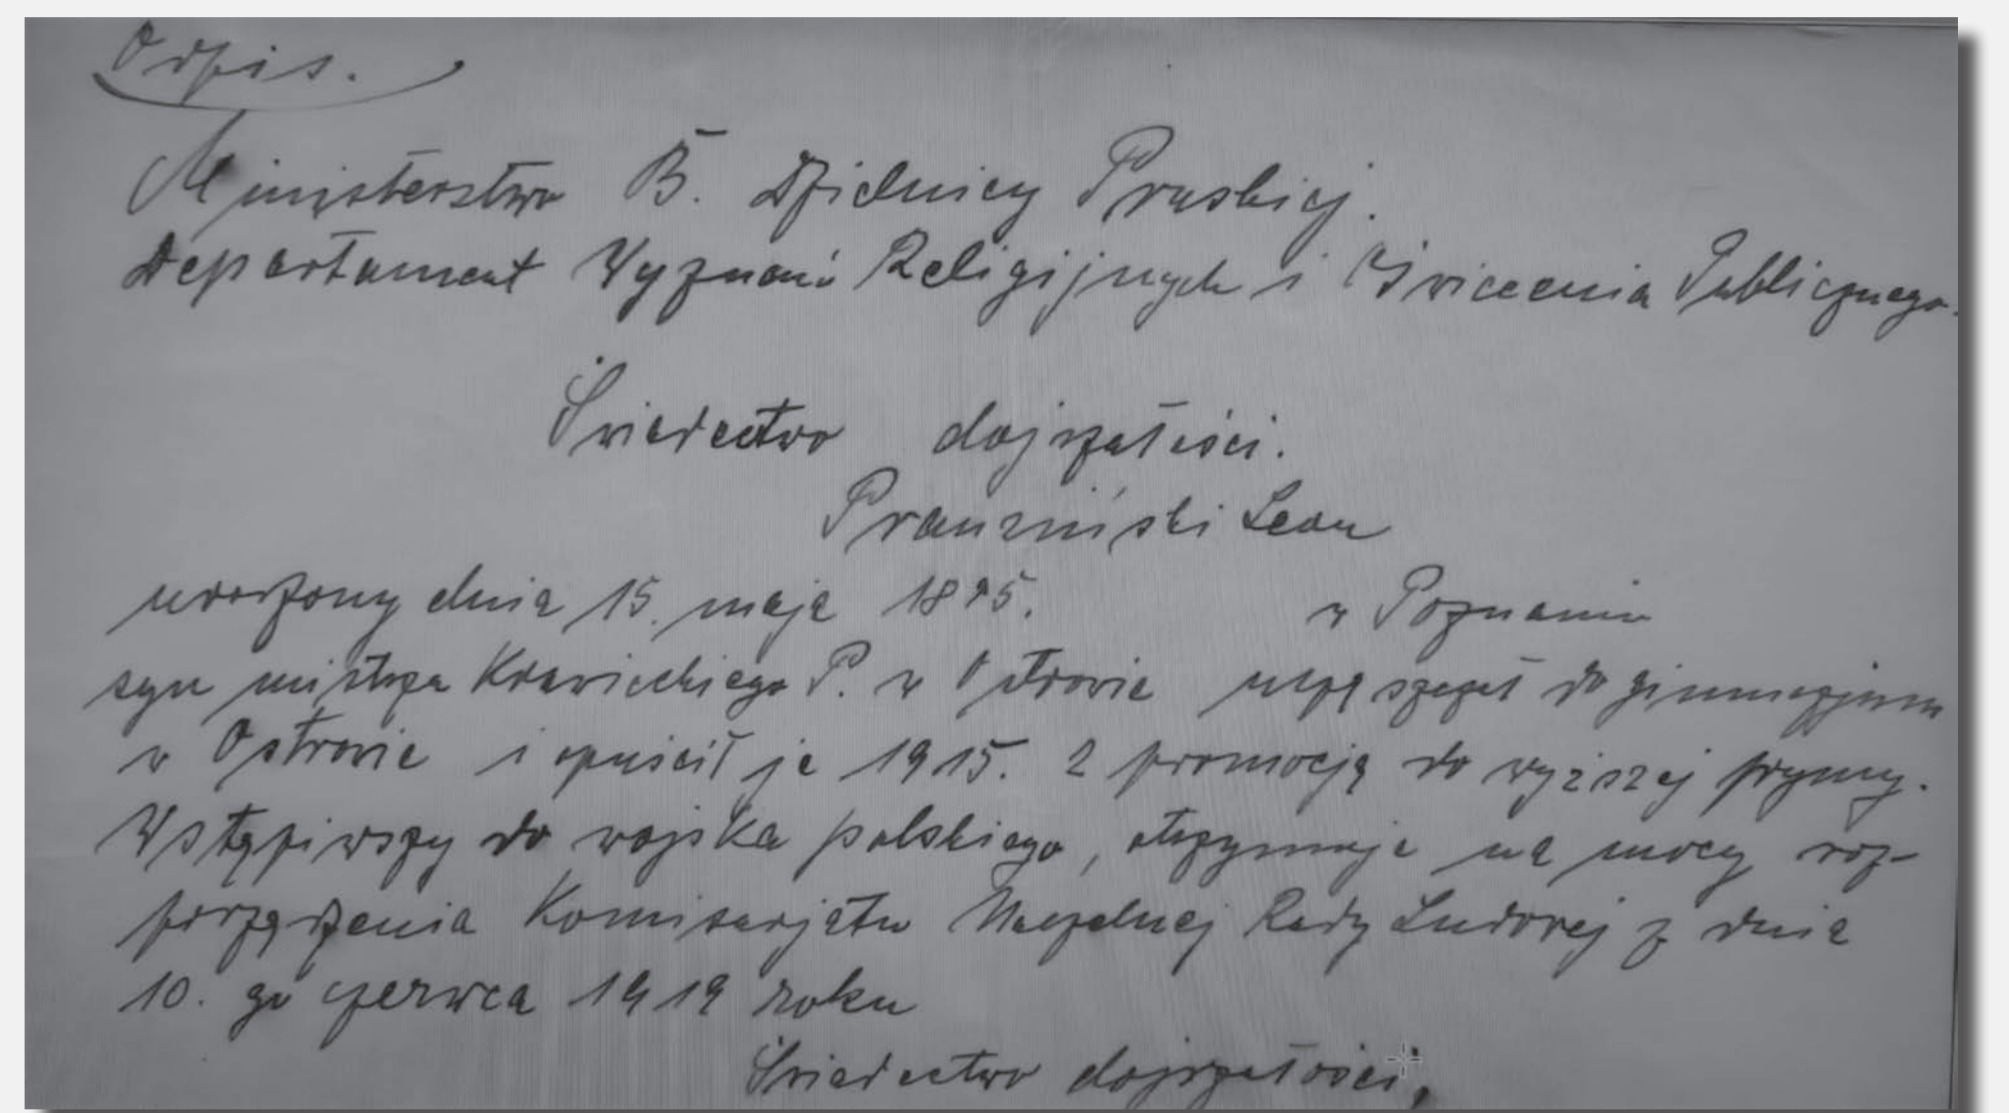 Odpis.
Ministerstwo B. Dzielnicy Pruskiej.
Departament Wyznań Religijnych i Oświecenia Publicznego.
Świadectwo dojrzałości.
Prauziński Leon
urodzony dnia 15. maja 1895. w Poznaniu
syn mistrza Krawieckiego P. w Ostrowie uczęszczał do gimnazjum
w Ostrowie i opuścił je 1915. z promocją do wyższej prymy.
Wstąpiwszy do wojska polskiego, otrzymuje na mocy roz-
porządzenia Komisarjatu Naczelnej Rady Ludowej z dnia
10. go czerwca 1919 roku
Świadectwo dojrzałości,